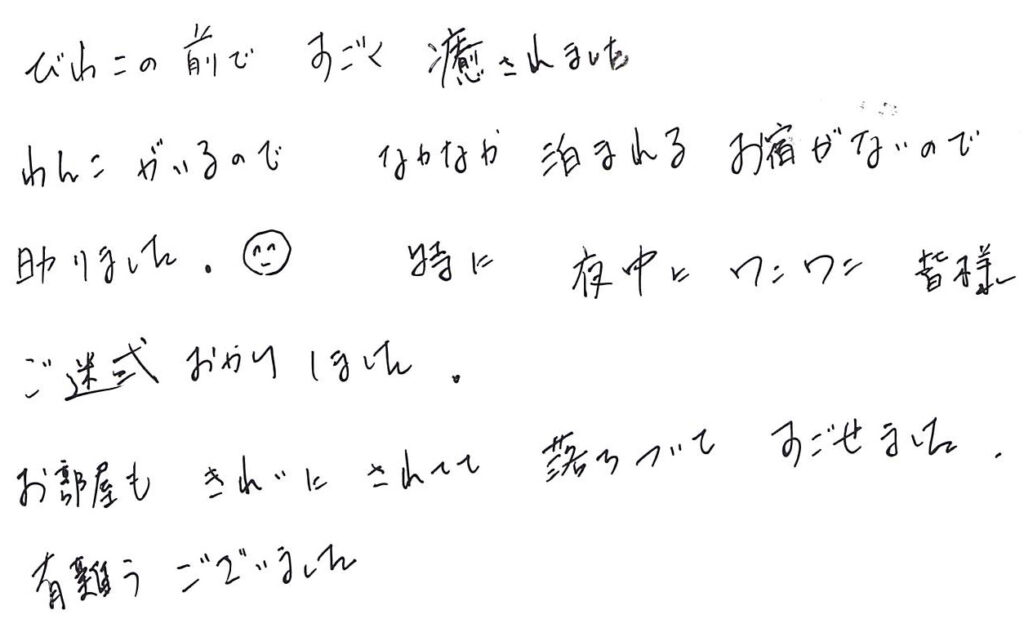 びわこの前で すごく 癒されました
わんこがいるので なかなか 泊まれる お宿がないので
助りました。 時に 夜中に ワンワン 皆様
ご迷惑 おかけしました。
お部屋も きれいに されてて 落ちついて すごせました。
有難う ございました